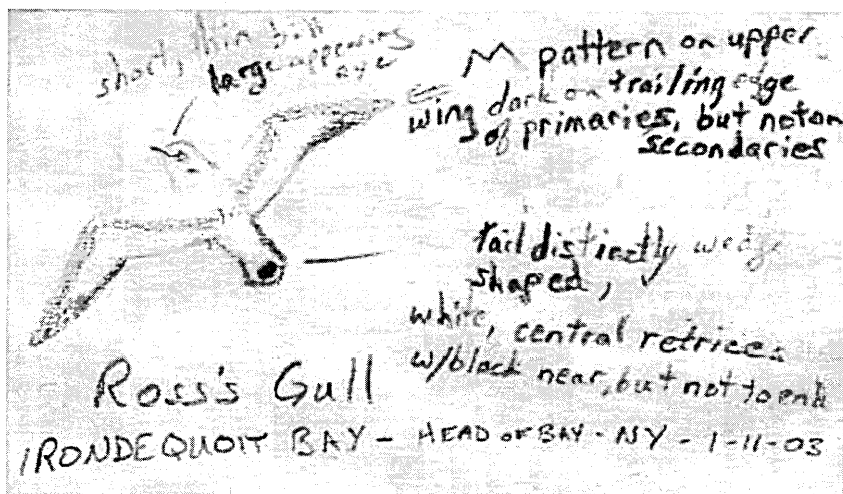 short, thin bill
large appearing
eye
M pattern on upper
wing dark on trailing edge
of primaries, but not on
secondaries
tail distinctly wedge
shaped,
white, central retrices
w/black near, but not to end
Ross's Gull
IRONDEQUOIT BAY - HEAD OF BAY - NY - 1-11-03